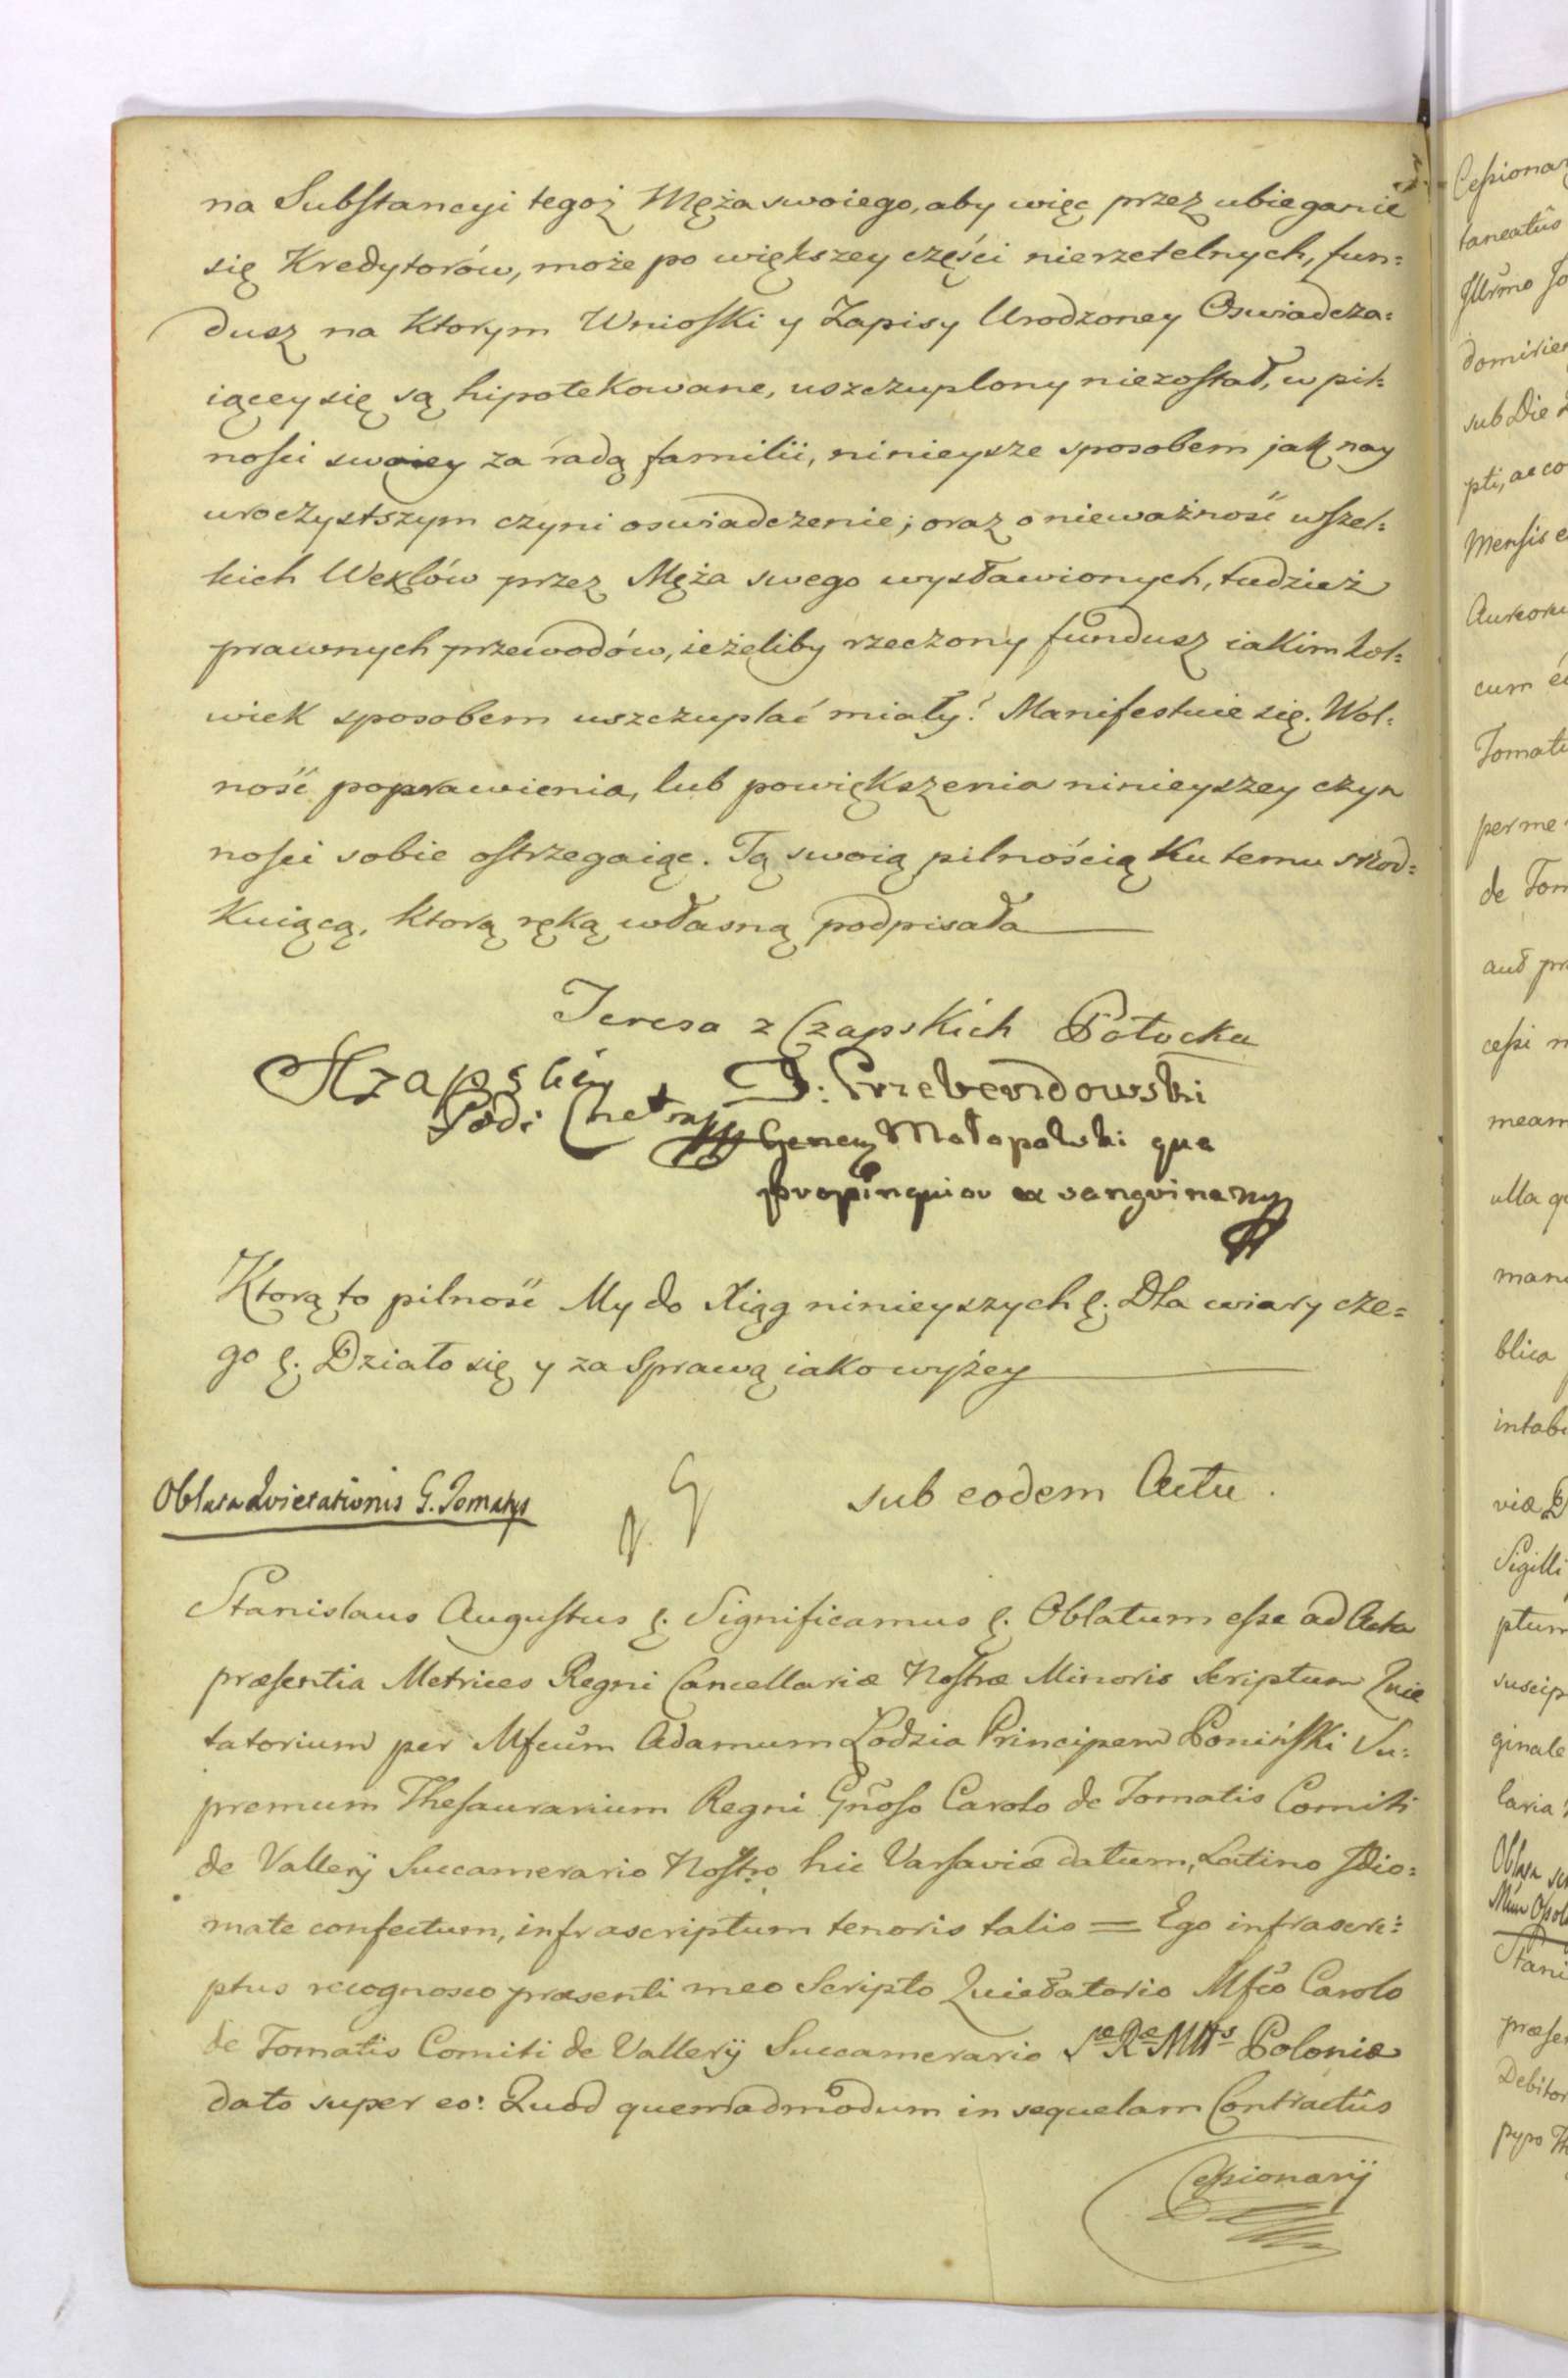 na Substancyi tegoż Męża swoiego, aby więc przez ubieganie
się Kredytorów, może po większey części nierzetelnych, fun=
dusz na ktorym Wnioski y Zapisy Urodzoney Oswiadcza=
iącey się są hipotekowane, uszczuplony niezostał, w pil=
ności swoiey za radą familii, ninieysze sposobem jak nay
uroczystszym czyni oswiadczenie; oraz o nieważność wszel=
kich Wexlów przez Męża swego wystawionych, tudzież
prawnych przewodów, ieżeliby rzeczony fundusz iakimkol=
wiek sposobem uszczuplać miały! Manifestuie się. Wol=
ność poprawienia, lub powiększenia ninieyszey czyn
ności sobie ostrzegaiąc. Tą swoią pilnością ku temu skod=
kuiącą, ktorą ręką własną podpisała
Teresa z Czapskich Potocka
Czapski
Podi Chełm
J: Przebendowski
Gener Małopolski qua
propinquior ex sangvine mp
Ktorą to pilność My do Xiąg ninieyszych &. Dla wiary cze=
go &. Działo się y za Sprawą iako wyżey
Oblata Quietationis G. Tomatys
sub eodem Actu.
Stanislaus Augustus &. Significamus &. Oblatum esse ad Acta
præsentia Metrices Regni Cancellariæ Nostræ Minoris Scriptum Quie
tatorium per Mfcum Adamum Łodzia Principem Poniński Su=
premum Thesaurarium Regni Gnoso Carolo de Tomatis Comiti
de Vallerÿ Succamerario Nostro hic Varsaviæ datum, Latino Idio=
mate confectum, infrascriptum tenoris talis = Ego infrascri=
ptus recognosco præsenti meo Scripto Quietatorio Mfco Carolo
de Tomatis Comiti de Vallerÿ Succamerario Sæ Ræ Mttis Poloniæ
dato super eo: Quod quemadmodum in sequelam Contractûs
Cessionarÿ
Cessionar
taneatûs
Illrmo Jo
sub Die
pti, ac co
Mensis e
cum
Tomati
per me
de Tom
aut pr
cessi n
meam
ulla q
man
blica
intab
viæ D
Sigilli
ptum
suscip
ginale
laria
Oblata
Stani
præse
Debitor